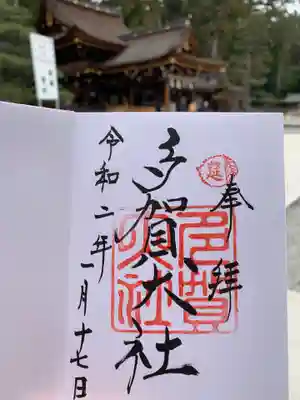 奉拝
延
多賀大社
多賀大社
令和二年一月十七日